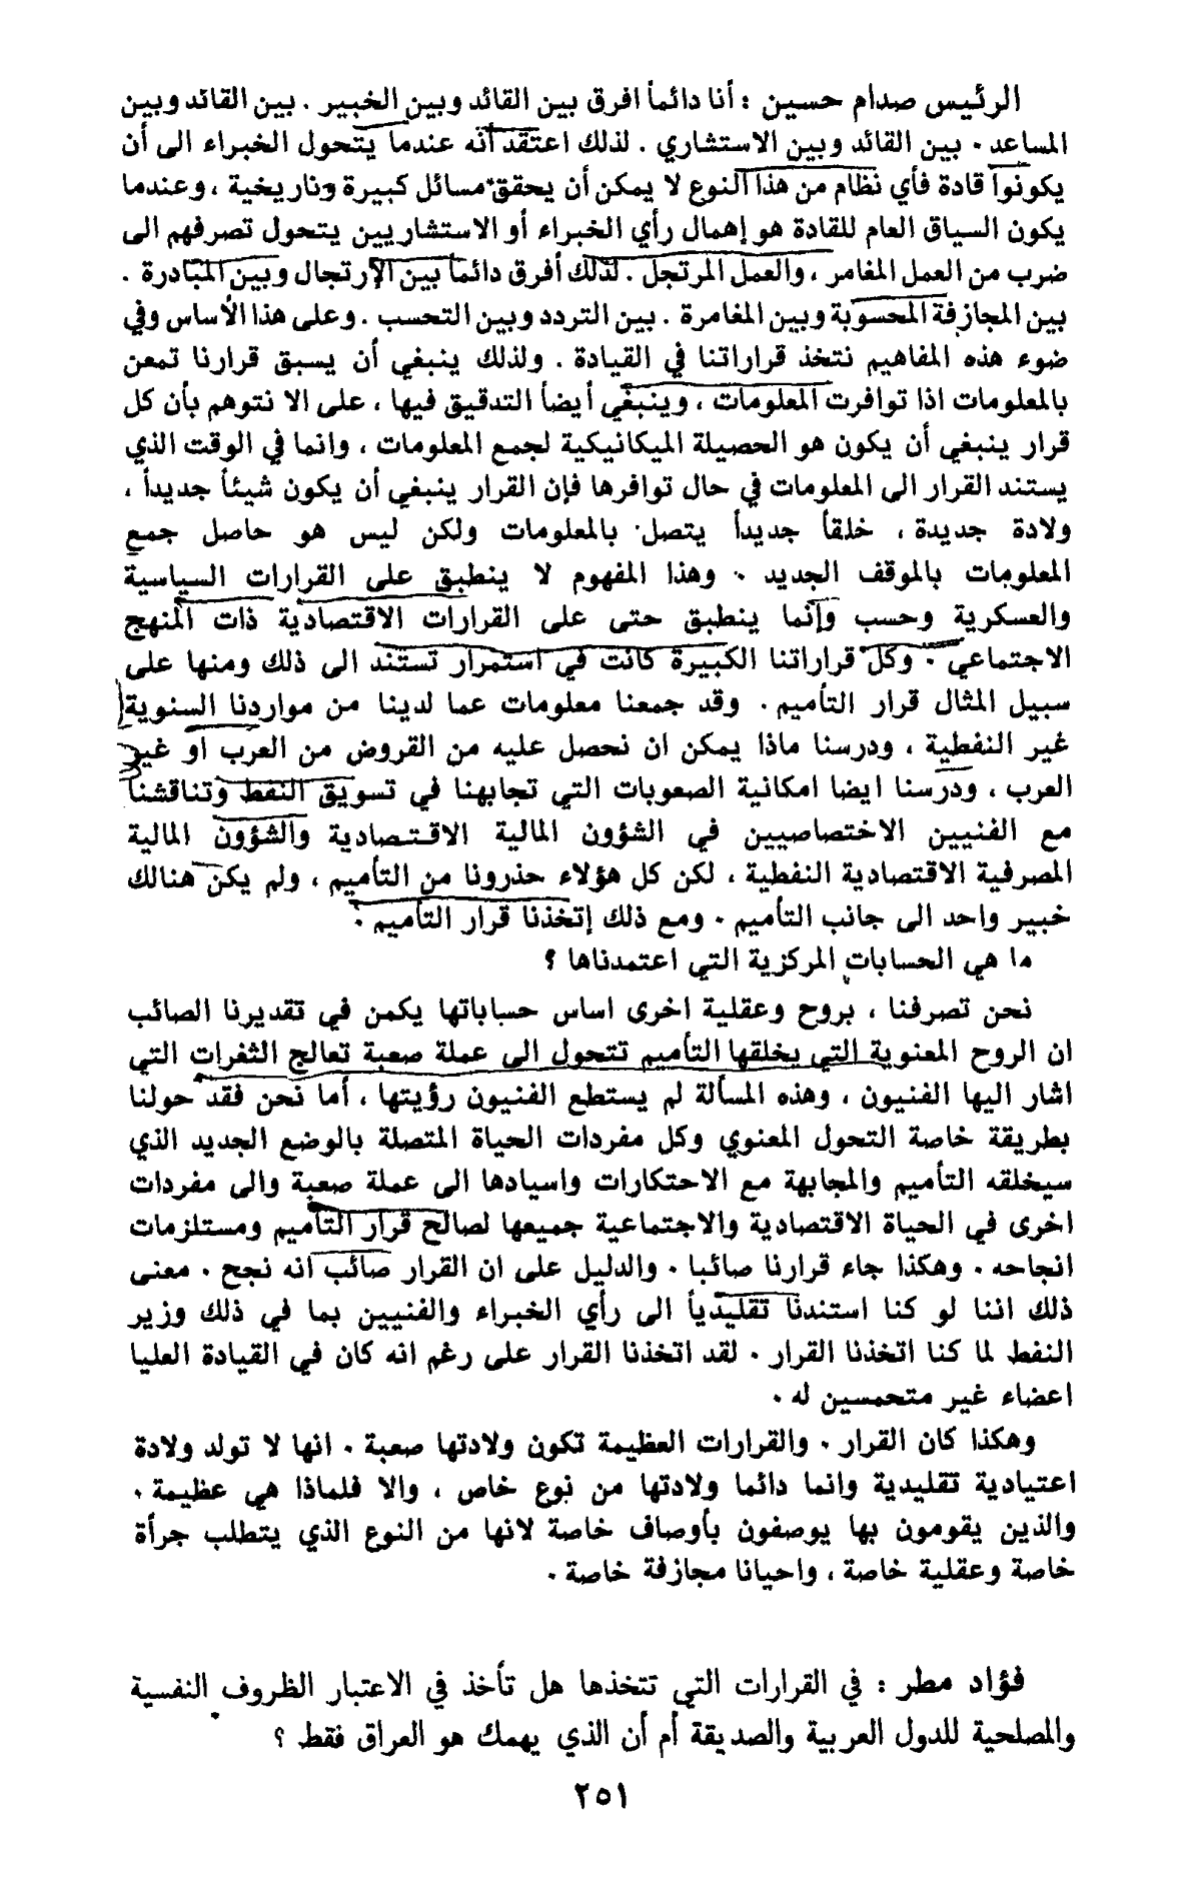 الرئيس صدام حسين : أنا دائماً افرق بين القائد وبين الخبير . بين القائد وبين
المساعد . بين القائد وبين الاستشاري . لذلك اعتقد أنه عندما يتحول الخبراء الى أن
يكونوا قادة فأي نظام من هذا النوع لا يمكن أن يحقق مسائل كبيرة وتاريخية ، وعندما
يكون السياق العام للقادة هو إهمال رأي الخبراء أو الاستشاريين يتحول تصرفهم الى
ضرب من العمل المغامر ، والعمل المرتجل . لذلك أفرق دائماً بين الإرتجال وبين المبادرة .
بين المجازفة المحسوبة وبين المغامرة . بين التردد وبين التحسب . وعلى هذا الأساس وفي
ضوء هذه المفاهيم نتخذ قراراتنا في القيادة . ولذلك ينبغي أن يسبق قرارنا تمعن
بالمعلومات اذا توافرت المعلومات ، وينبغي أيضاً التدقيق فيها ، على الا نتوهم بأن كل
قرار ينبغي أن يكون هو الحصيلة الميكانيكية لجمع المعلومات ، وانما في الوقت الذي
يستند القرار الى المعلومات في حال توافرها فإن القرار ينبغي أن يكون شيئاً جديداً ،
ولادة جديدة ، خلقاً جديداً يتصل بالمعلومات ولكن ليس هو حاصل جمع
المعلومات بالموقف الجديد . وهذا المفهوم لا ينطبق على القرارات السياسية
والعسكرية وحسب وإنما ينطبق حتى على القرارات الاقتصادية ذات المنهج
الاجتماعي . وكل قراراتنا الكبيرة كانت في استمرار تستند الى ذلك ومنها على
سبيل المثال قرار التأميم . وقد جمعنا معلومات عما لدينا من مواردنا السنوية
غير النفطية ، ودرسنا ماذا يمكن ان نحصل عليه من القروض من العرب او غير
العرب ، ودرسنا ايضا امكانية الصعوبات التي تجابهنا في تسويق النفط وتناقشنا
مع الفنيين الاختصاصيين في الشؤون المالية الاقتصادية والشؤون المالية
المصرفية الاقتصادية النفطية ، لكن كل هؤلاء حذرونا من التأميم ، ولم يكن هنالك
خبير واحد الى جانب التأميم . ومع ذلك إتخذنا قرار التأميم .
ما هي الحسابات المركزية التي اعتمدناها ؟
نحن تصرفنا ، بروح وعقلية اخرى اساس حساباتها يكمن في تقديرنا الصائب
ان الروح المعنوية التي يخلقها التأميم تتحول الى عملة صعبة تعالج الثغرات التي
اشار اليها الفنيون ، وهذه المسألة لم يستطع الفنيون رؤيتها ، أما نحن فقد حولنا
بطريقة خاصة التحول المعنوي وكل مفردات الحياة المتصلة بالوضع الجديد الذي
سيخلقه التأميم والمجابهة مع الاحتكارات واسيادها الى عملة صعبة والى مفردات
اخرى في الحياة الاقتصادية والاجتماعية جميعها لصالح قرار التأميم ومستلزمات
انجاحه . وهكذا جاء قرارنا صائبا . والدليل على ان القرار صائب انه نجح . معنى
ذلك اننا لو كنا استندنا تقليدياً الى رأي الخبراء والفنيين بما في ذلك وزير
النفط لما كنا اتخذنا القرار . لقد اتخذنا القرار على رغم انه كان في القيادة العليا
اعضاء غير متحمسين له .
وهكذا كان القرار . والقرارات العظيمة تكون ولادتها صعبة . انها لا تولد ولادة
اعتيادية تقليدية وانما دائما ولادتها من نوع خاص ، والا فلماذا هي عظيمة .
والذين يقومون بها يوصفون بأوصاف خاصة لانها من النوع الذي يتطلب جرأة
خاصة وعقلية خاصة ، واحيانا مجازفة خاصة .
فؤاد مطر : في القرارات التي تتخذها هل تأخذ في الاعتبار الظروف النفسية
والمصلحية للدول العربية والصديقة أم أن الذي يهمك هو العراق فقط ؟
٢٥١